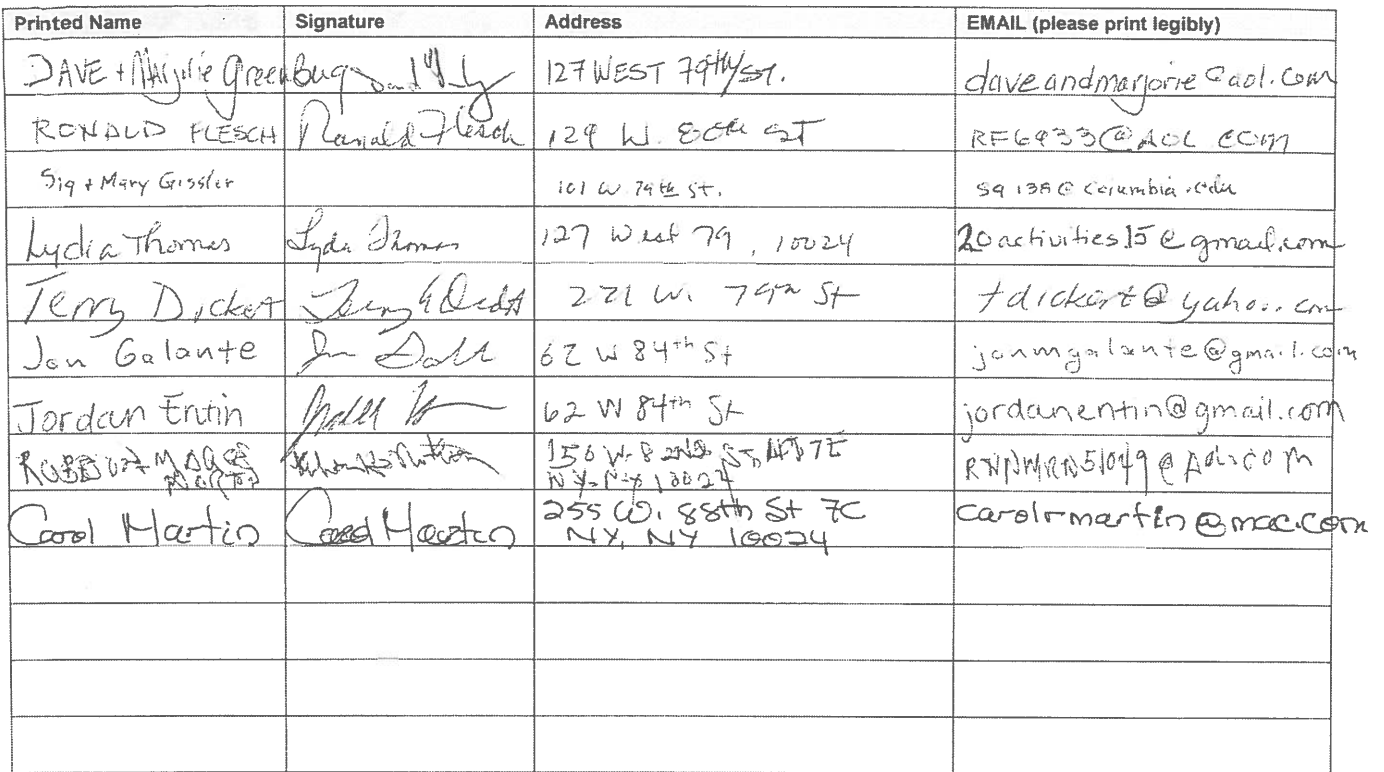 Printed Name Signature Address EMAIL (please print legibly)
DAVE + Marjorie GreenBug 127 WEST 79th ST. daveandmarjorie@aol.com
RONALD FLESCH Ronald Flesch 129 W. 80th ST RF6933@AOL COM
Sig + Mary Gissler 101 W 79th St. sg138@columbia.edu
Lydia Thomas Lydia Thomas 127 West 79, 10024 20activities15@gmail.com
Terry Dickert 221 W. 79th St tdickert@yahoo.com
Jon Galante 62 W 84th St jonmgalante@gmail.com
Jordan Entin 62 W 84th St jordanentin@gmail.com
150 W. 82ND ST, APT 7E
NY-NY 10024
Carol Martin Carol Martin 255 W. 88th St 7C carolrmartin@mac.com
NY, NY 10024